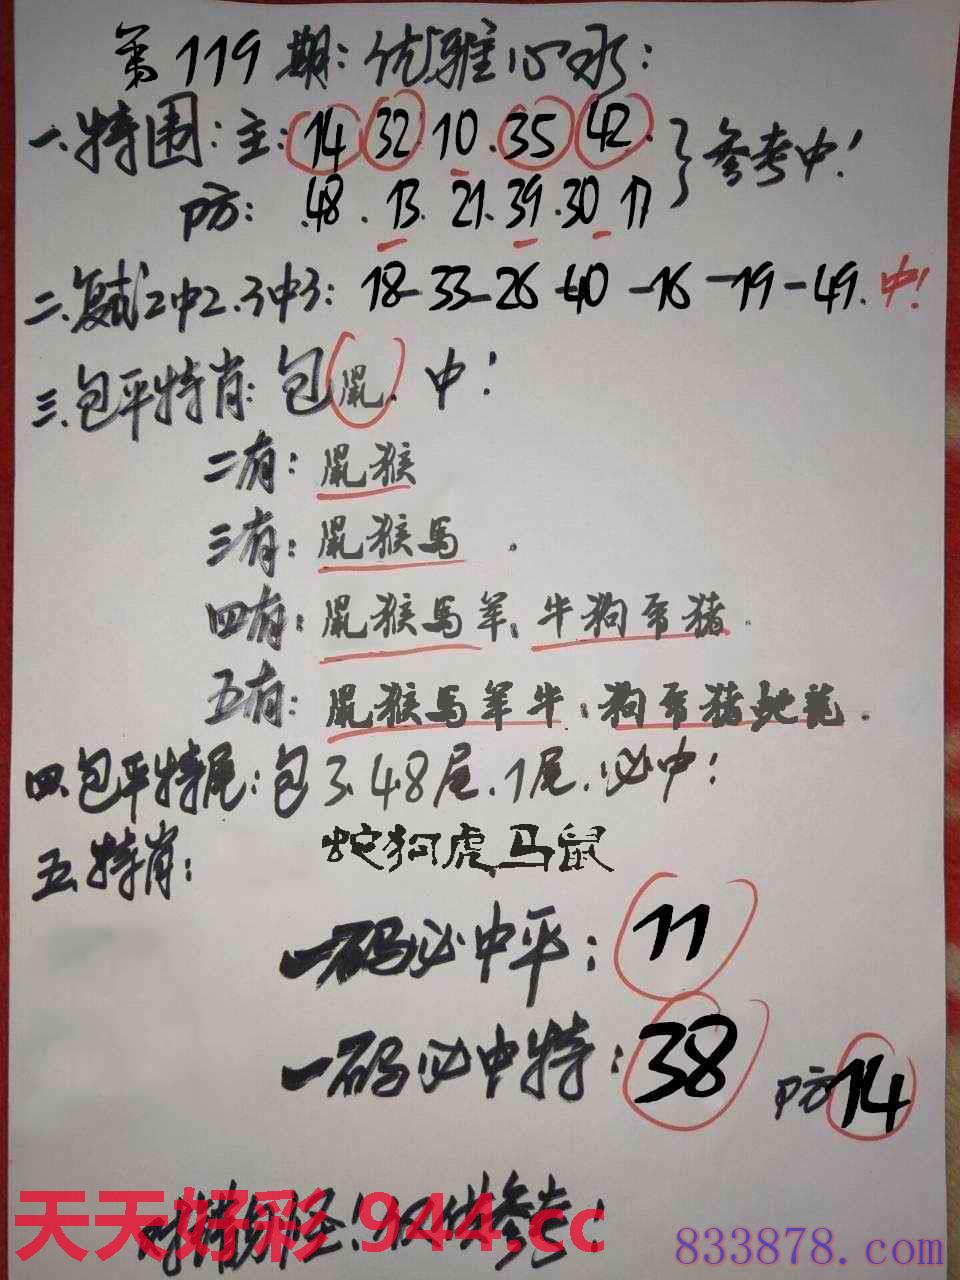 第119期:优雅心水:
一.特围:主:14 32 10.35 42.
参考中!
防:48.13.21.39.30 17
二.复试2中2.3中3:18-33-26-40-16-19-49.中!
三.包平特肖:包鼠.中!
二有:鼠猴
三有:鼠猴马.
四有:鼠猴马羊、牛狗兔猪.
五有:鼠猴马羊牛:狗兔猪蛇龙.
四.包平特尾:包3.48尾.1尾.必中!
五.特肖: 蛇狗虎马鼠
一码必中平:11
一码必中特:38 防14
仅供参考!
天天好彩 944.cc
833878.com